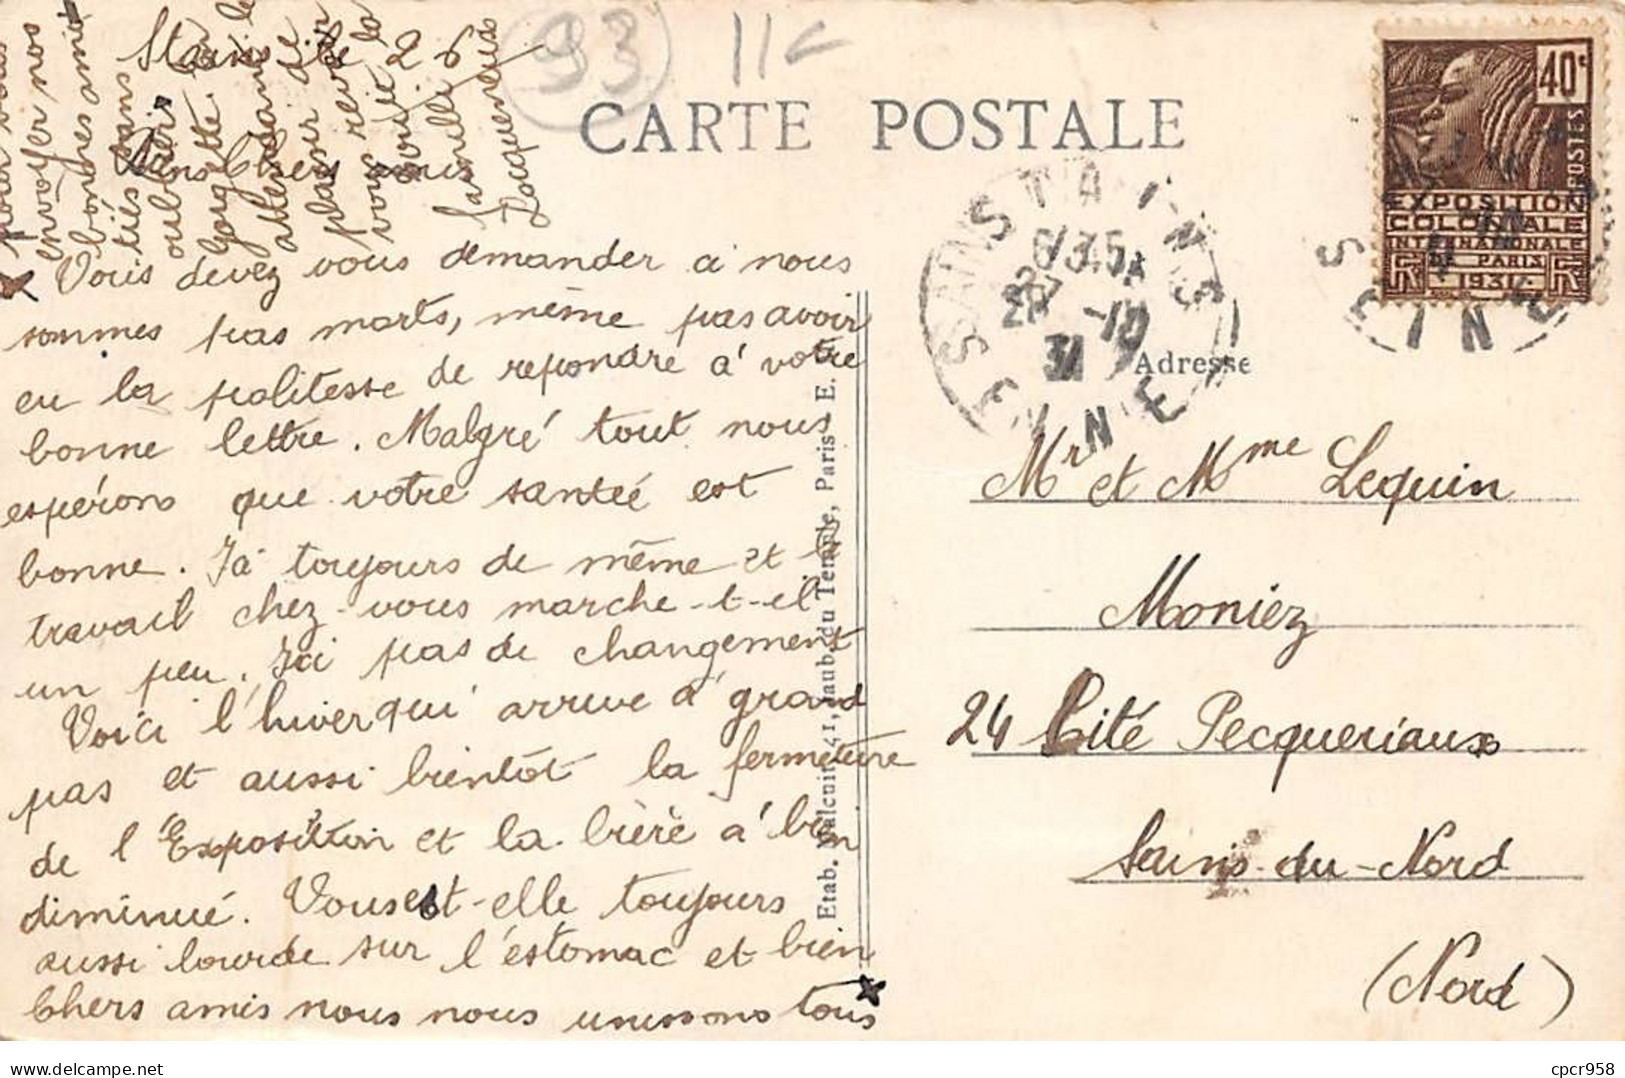 Stains le 26
93
11
CARTE POSTALE
Biens Chers amis
Vous devez vous demander ci nous
sommes pas morts, même pas avoir
eu la politesse de repondre à votre
bonne lettre. Malgré tout nous
espérons que votre santée est
bonne. Ja toujours de même et le
travail chez vous marche-t-el
un peu. Ici pas de changement
Voici l'hiver qui arrive à grand
pas et aussi bientôt la fermeture
de l'Exposition et la bière à bien
diminué. Vous est-elle toujours
aussi lourde sur l'estomac et bien
Chers amis nous nous unissons tous
pour vous
envoyer nos
bonnes ami-
tiés sans
oublier
Georgette.
attendant le
plaisir de
vous revoir
la
famille
Jacquencux
Etab. Malcuit, 41, Faub. du Temple, Paris E.
STAINS
6/345
27-10
31
SEINE
40c
POSTES
EXPOSITION
COLONIALE
INTERNATIONALE
PARIS
1931
RF
RF
SEINE
Adresse
Mr et Mme Lequin
Moniez
24 Cité Pecqueriaux
Sains-du-Nord
(Nord)
cpcr958